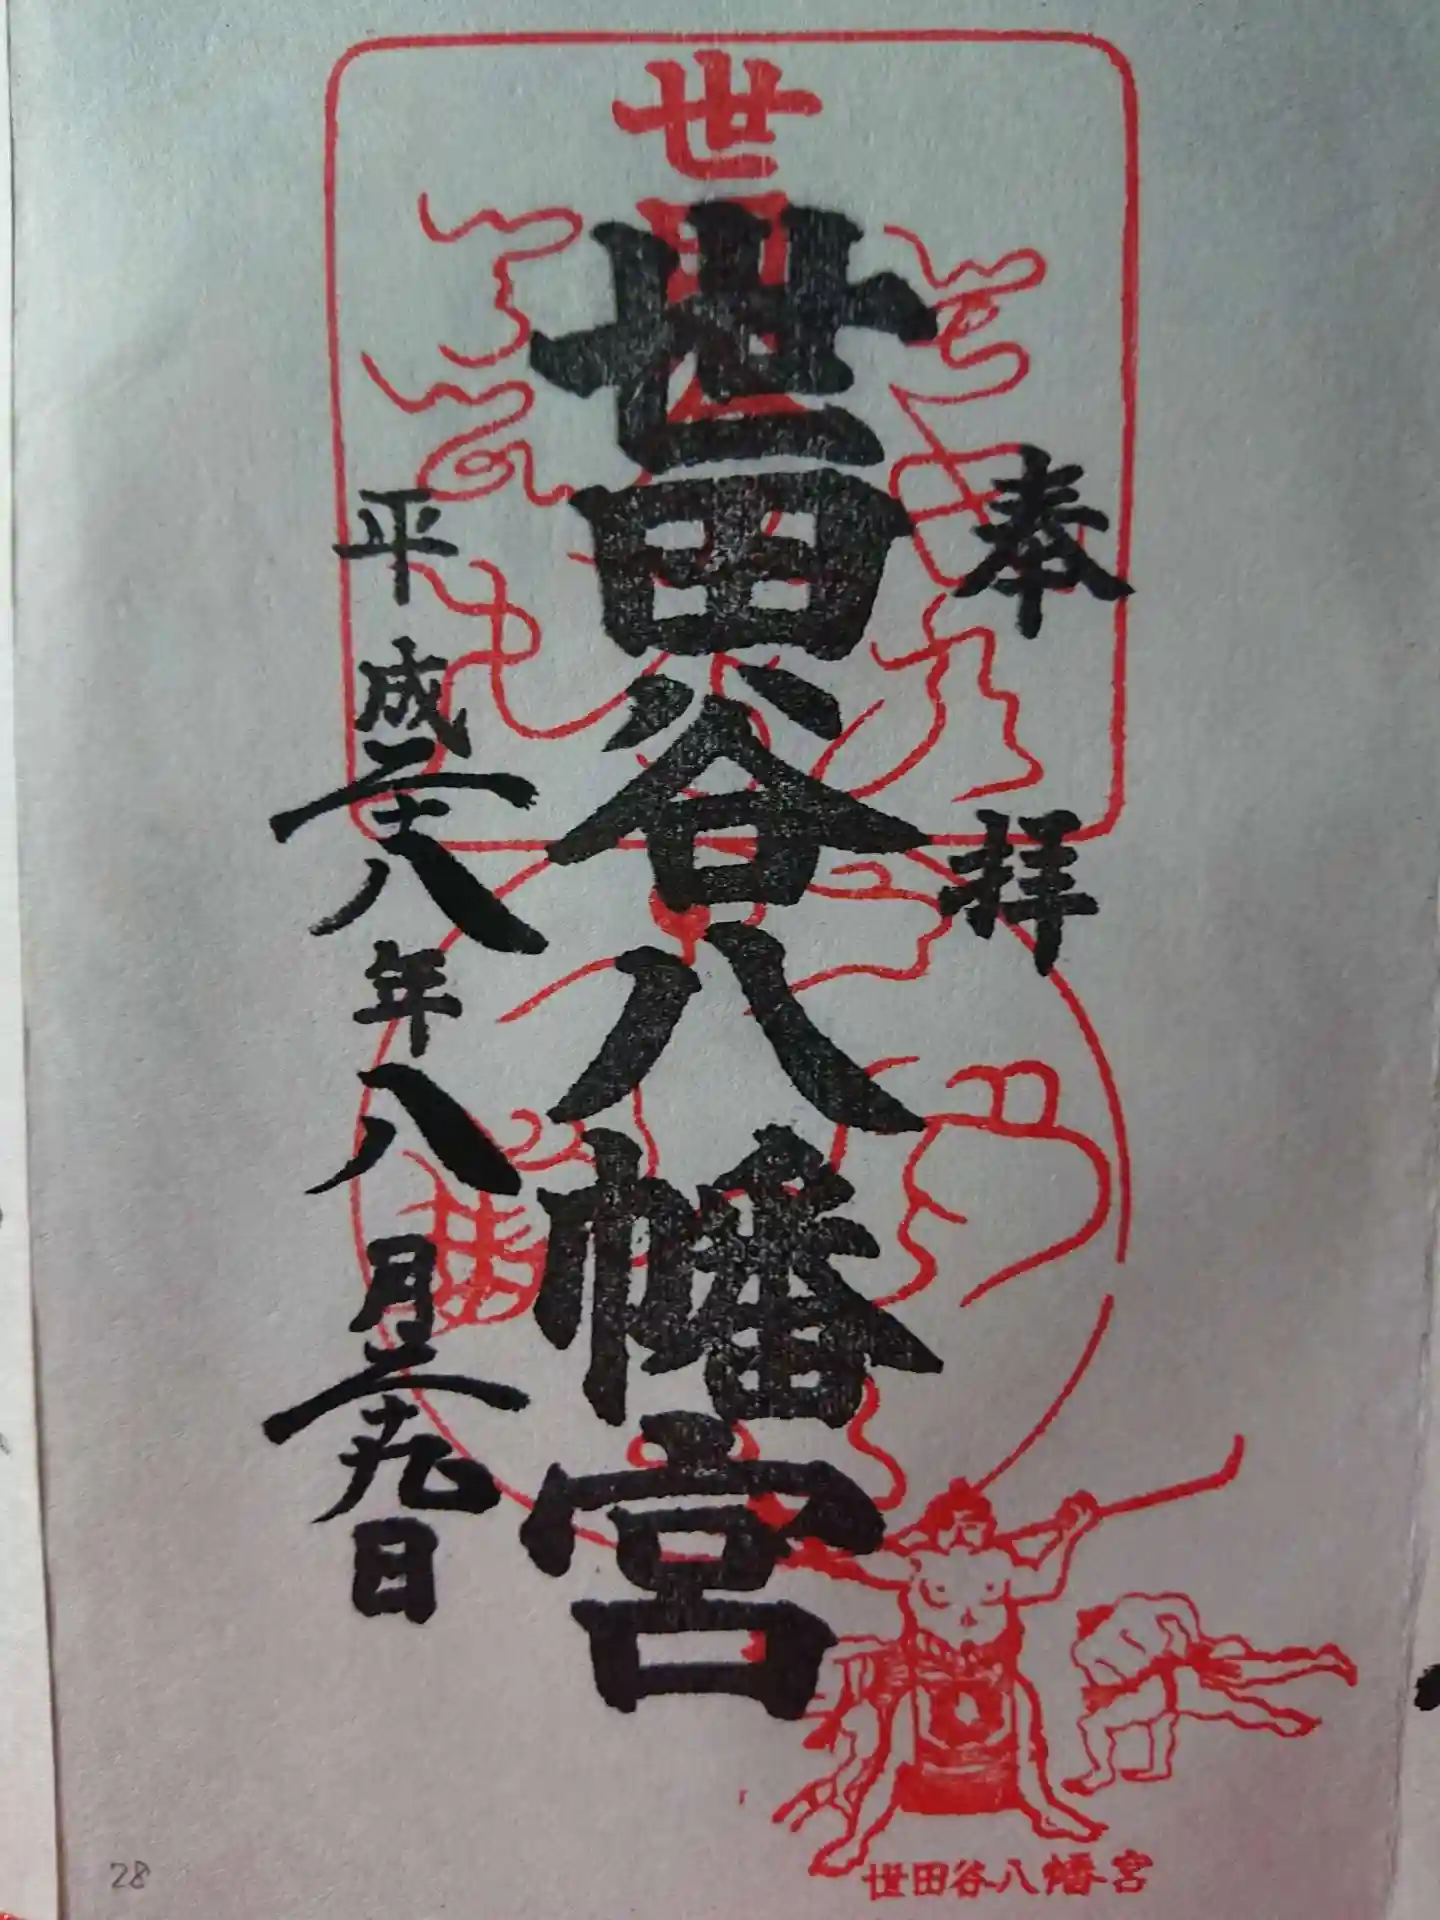 奉拝
世田谷八幡宮
平成二十八年八月二十九日
世
世田谷八幡宮
28